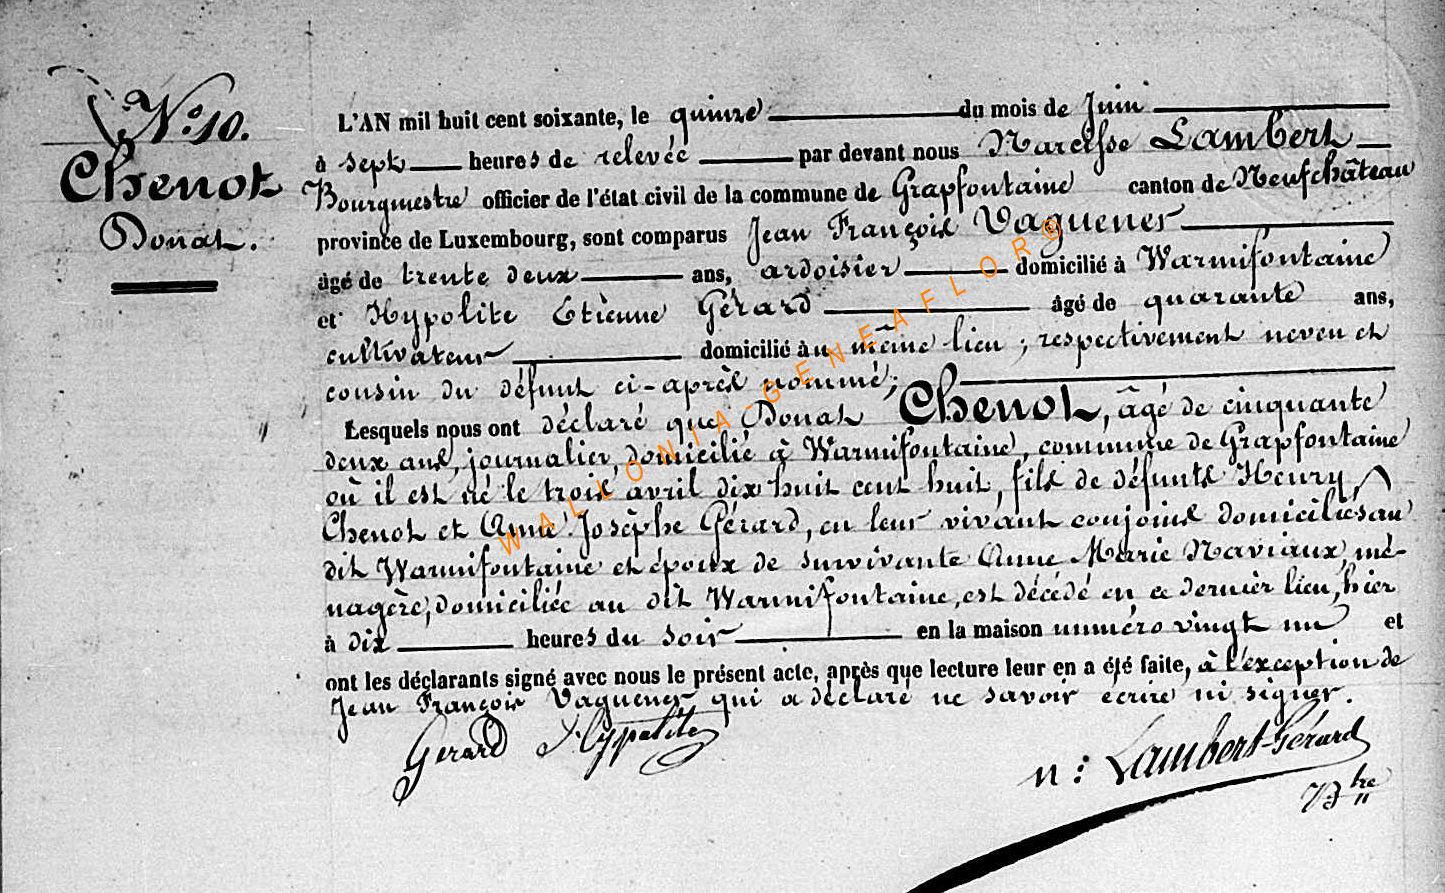 N.º 10.
Chenot
Donat.
L'AN mil huit cent soixante, le quinze du mois de Juin
à sept heures de relevée par devant nous Narcisse Lambert
Bourgmestre officier de l'état civil de la commune de Grapfontaine canton de Neufchâteau
province de Luxembourg, sont comparus Jean François Vaguener
âgé de trente deux ans, ardoisier domicilié à Warmifontaine
et Hypolite Etienne Gérard âgé de quarante ans,
cultivateur domicilié au même lieu ; respectivement neveu et
cousin du défunt ci-après nommé;
Lesquels nous ont déclaré que Donat Chenot, âgé de cinquante
deux ans, journalier, domicilié à Warmifontaine, commune de Grapfontaine
où il est né le trois avril dix huit cent huit, fils de défunts Henry
Chenot et Anne Josèphe Gérard, en leur vivant conjoins domiciliés au
dit Warmifontaine et époux de survivante Anne Marie Naviaux, mé-
nagère, domiciliée au dit Warmifontaine, est décédé en ce dernier lieu, hier
à dix heures du soir en la maison numéro vingt un et
ont les déclarants signé avec nous le présent acte, après que lecture leur en a été faite, à l'exception de
Jean François Vaguener qui a déclaré ne savoir écrire ni signer.
Gerard Hyppolite
n : Lambert-Gérard
Btre
WALLONIA-GENEAFLOR®